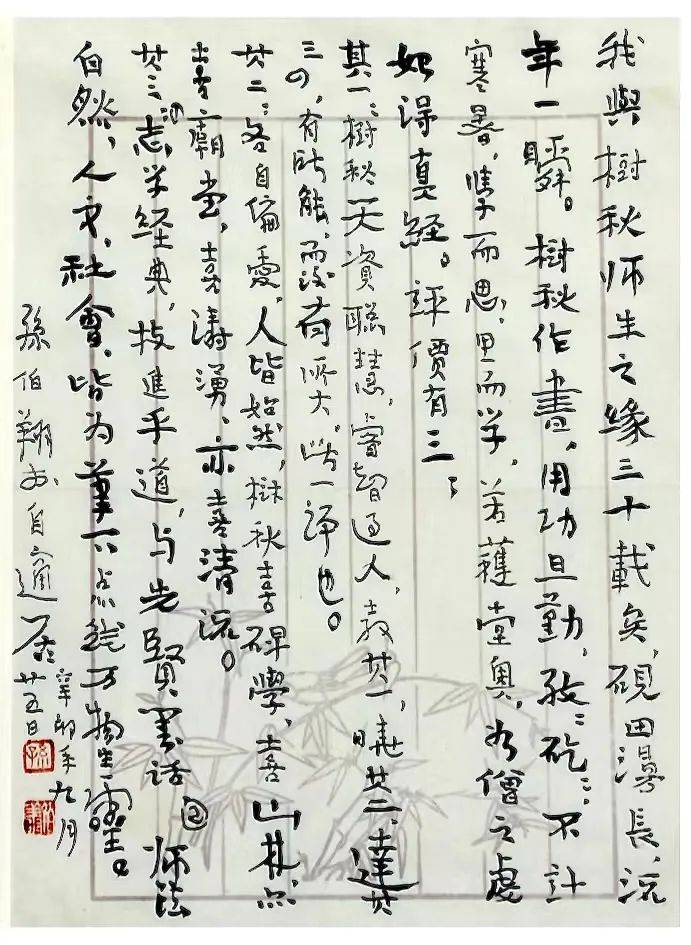 我與樹秋师生之缘三十載矣，砚田漫長，流
年一瞬。樹秋作書，用功且勤，孜：矻：，不計
寒暑，學而思，思而学，若获堂奥，如僧之虔
如得真經。評價有三：
其一：樹秋天資聪慧，睿智过人，教其一，曉其二，達其
三四，有所能，而後有所大，此一評也。
其二：各自偏爱，人皆如然，樹秋喜碑學，喜山林，亦
喜廟堂，喜涛湧，亦喜清流。
其三：志学经典，技進乎道，与先賢墨话。師法
自然，人文，社會，皆为筆下点线万物生灵。
孫伯翔於自適居
辛卯年九月
廿五日